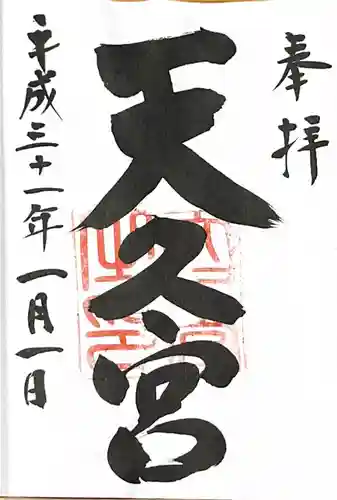 奉拝
天久宮
平成三十一年一月一日